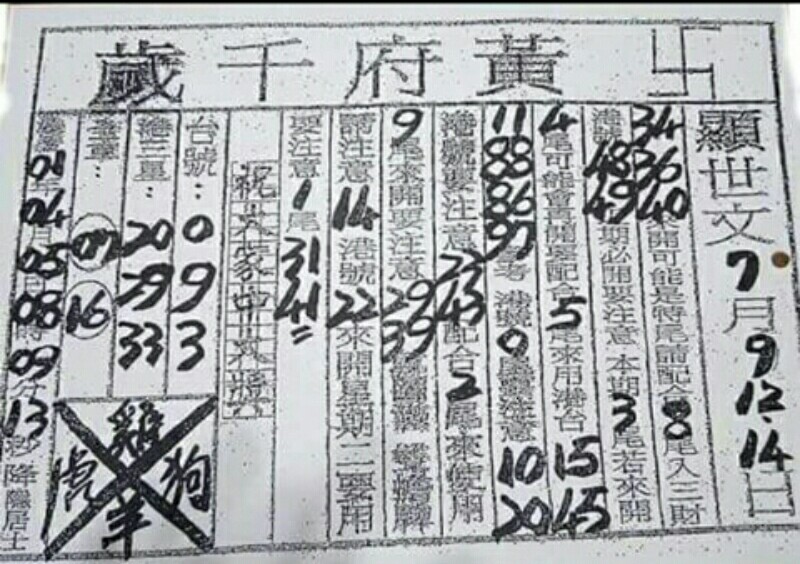 卍黃府千歲
顯世文7月9 12.14日
34 36 40來開可能是特尾請配合8尾入三財
港號48 49期必開要注意本期3尾若來開
4尾可能會再開要配合5尾來用港台15 45
11 88 86 97考港號0尾注意10 20
港號要注意23 43配合2尾來使用
9尾來開要注意29 39
請注意14港號22來開星期二要用
要注意1尾31 41=
祝大家中大獎
台號:0 9 3
港三星:20 29 33
07 16
01年04月05日08時09分13秒降隱居士
雞
虎 狗
羊